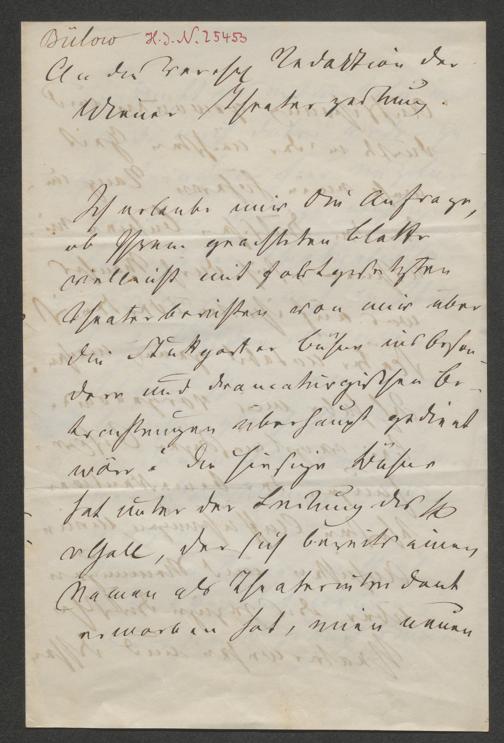 Bülow H.I.N. 25453
An die verehrl Redaktion der
Wiener Theaterzeitung.
Ich erlaube mir die Anfrage,
ob Ihrem geachteten Blatte
vielleicht mit fortgesetzten
Theaterberichten von mir über
die Stuttgarter Bühne insbeson-
dere und dramaturgischen Be-
trachtungen überhaupt gedient
wäre? Die hiesige Bühne
hat unter der Leitung des H
v Gall, der sich bereits einen
Namen als Theaterintendant
erworben hat, einen neuen